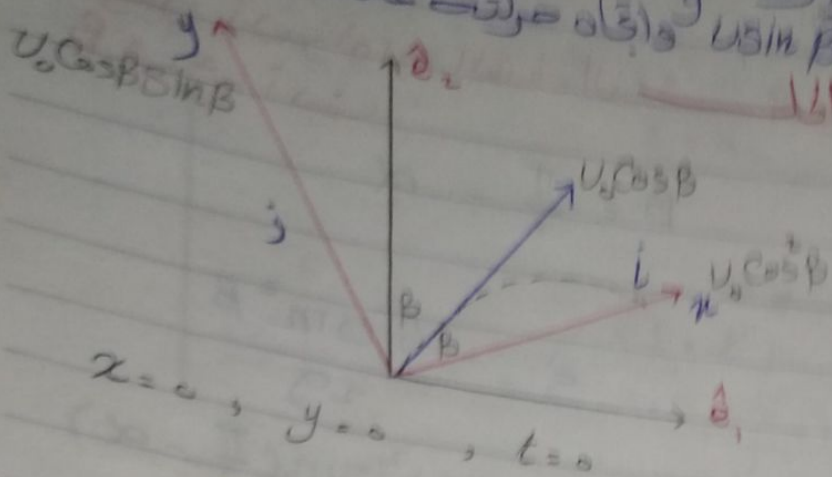 U₀ sin β
y
ê₂
U₀ Cosβ Sinβ
U₀ Cosβ
j
i
x U₀ Cos²β
β
β
ê₁
x = 0 , y = 0 , t = 0